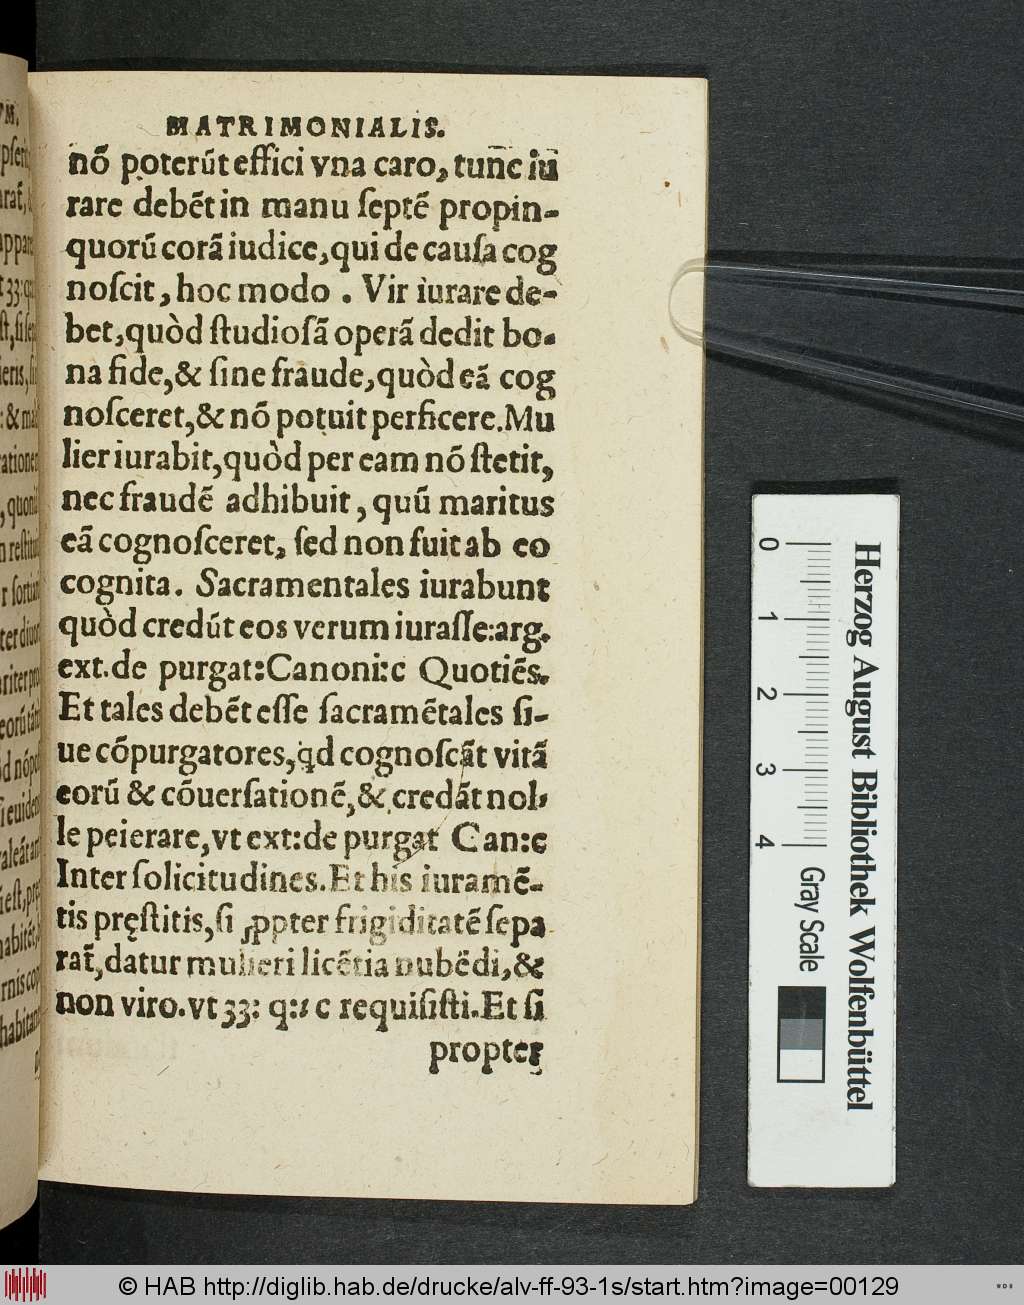 MATRIMONIALIS.
nõ poterũt effici vna caro, tunc iu
rare debẽt in manu ſeptẽ propin-
quorũ corã iudice, qui de cauſa cog
noſcit, hoc modo . Vir iurare de-
bet, quòd ſtudioſã operã dedit bo-
na fide, & ſine fraude, quòd eã cog
noſceret, & nõ potuit perficere. Mu
lier iurabit, quòd per eam nõ ſtetit,
nec fraudẽ adhibuit, quũ maritus
eã cognoſceret, ſed non fuit ab eo
cognita. Sacramentales iurabunt
quòd credũt eos verum iuraſſe: arg.
ext. de purgat: Canoni: c Quotiẽs.
Et tales debẽt eſſe ſacramẽtales ſi-
ue cõpurgatores, ꝗd cognoſcãt vitã
eorũ & cõuerſationẽ, & credãt nol-
le peierare, vt ext: de purgat Can: c
Inter ſolicitudines. Et his iuramẽ-
tis pręſtitis, ſi ꝓpter frigiditatẽ ſepa
rat̃, datur mulieri licẽtia nubẽdi, &
non viro. vt 33: q: 1 c requiſiſti. Et ſi
propter
0 1 2 3 4
Gray Scale
Herzog August Bibliothek Wolfenbüttel
© HAB http://diglib.hab.de/drucke/alv-ff-93-1s/start.htm?image=00129